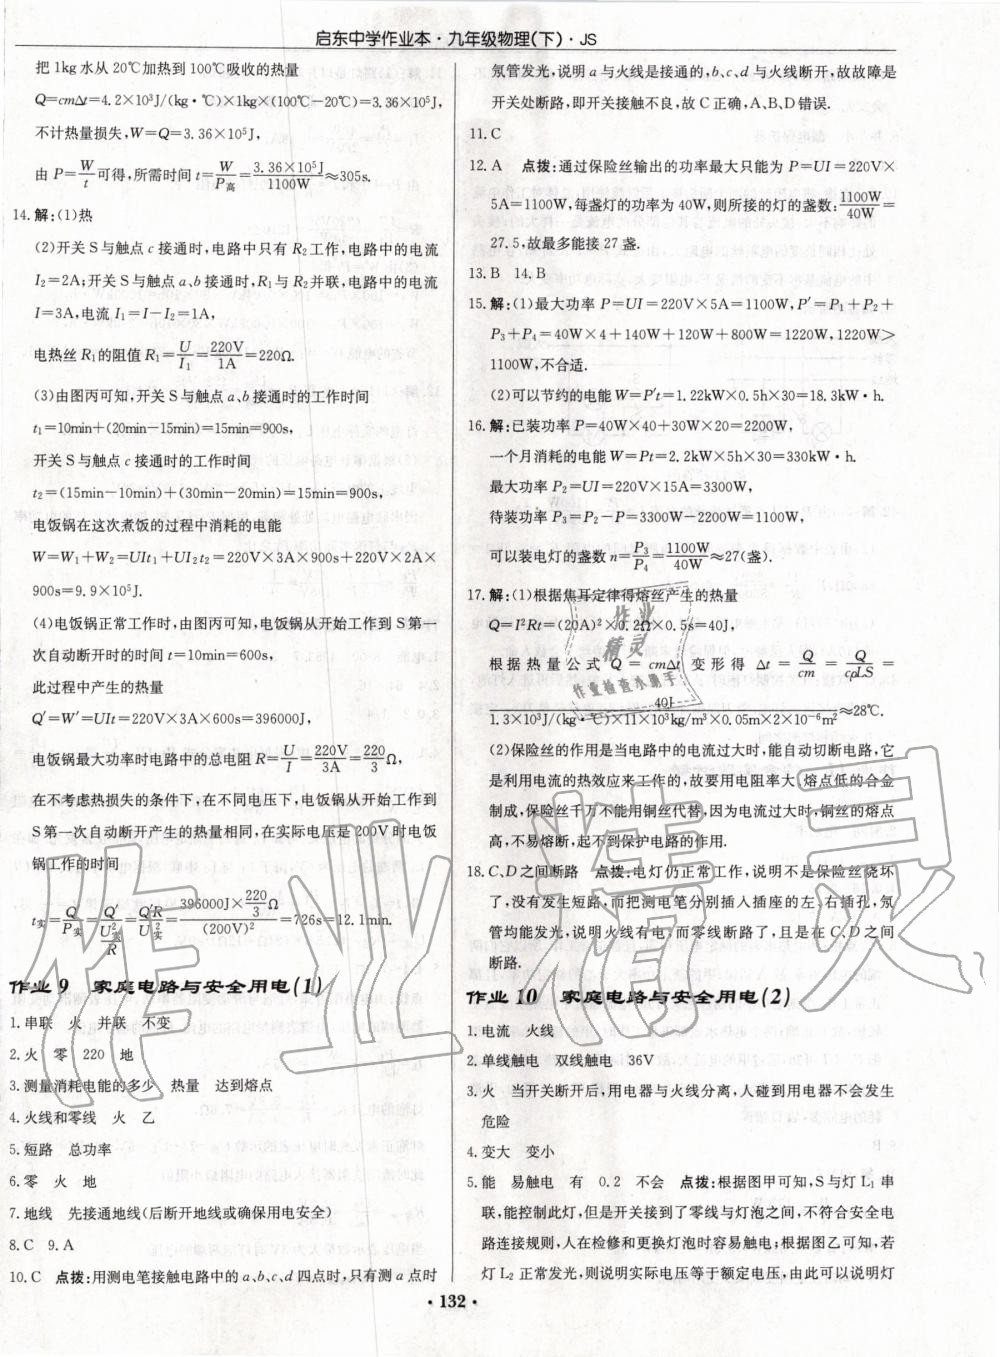 启东中学作业本·九年级物理(下)·JS
把1kg水从20℃加热到100℃吸收的热量
Q=cmΔt=4.2×10³J/(kg·℃)×1kg×(100℃-20℃)=3.36×10⁵J,
不计热量损失,W=Q=3.36×10⁵J,
由 P=W/t可得,所需时间 t=W/P高=3.36×10⁵J/1100W≈305s.
14.解:(1)热
(2)开关S与触点c接通时,电路中只有R₂工作,电路中的电流
I₂=2A;开关S与触点a、b接通时,R₁与R₂并联,电路中的电流
I=3A,电流I₁=I-I₂=1A,
电热丝R₁的阻值R₁=U/I₁=220V/1A=220Ω.
(3)由图丙可知,开关S与触点a、b接通时的工作时间
t₁=10min+(20min-15min)=15min=900s,
开关S与触点c接通时的工作时间
t₂=(15min-10min)+(30min-20min)=15min=900s,
电饭锅在这次煮饭的过程中消耗的电能
W=W₁+W₂=UIt₁+UI₂t₂=220V×3A×900s+220V×2A×
900s=9.9×10⁵J.
(4)电饭锅正常工作时,由图丙可知,电饭锅从开始工作到S第一
次自动断开时的时间t=10min=600s,
此过程中产生的热量
Q′=W′=UIt=220V×3A×600s=396000J,
电饭锅最大功率时电路中的总电阻R=U/I=220V/3A=220/3Ω,
在不考虑热损失的条件下,在不同电压下,电饭锅从开始工作到
S第一次自动断开产生的热量相同,在实际电压是200V时电饭
锅工作的时间
t实=Q/P实=Q′/(U²实/R)=Q′R/U²实=396000J×220/3Ω/(200V)²=726s=12.1min.
作业9 家庭电路与安全用电(1)
1.串联 火 并联 不变
2.火 零 220 地
3.测量消耗电能的多少 热量 达到熔点
4.火线和零线 火 乙
5.短路 总功率
6.零 火 地
7.地线 先接通地线(后断开地线或确保用电安全)
8.C 9.A
10.C 点拨:用测电笔接触电路中的a、b、c、d四点时,只有测a点时
氖管发光,说明a与火线是接通的,b、c、d与火线断开,故故障是
开关处断路,即开关接触不良,故C正确,A、B、D错误.
11.C
12.A 点拨:通过保险丝输出的功率最大只能为P=UI=220V×
5A=1100W,每盏灯的功率为40W,则所接的灯的盏数:1100W/40W=
27.5,故最多能接27盏.
13.B 14.B
15.解:(1)最大功率P=UI=220V×5A=1100W,P′=P₁+P₂+
P₃+P₄=40W×4+140W+120W+800W=1220W,1220W>
1100W,不合适.
(2)可以节约的电能W=P′t=1.22kW×0.5h×30=18.3kW·h.
16.解:已装功率P=40W×40+30W×20=2200W,
一个月消耗的电能W=Pt=2.2kW×5h×30=330kW·h.
最大功率P₂=UI=220V×15A=3300W,
待装功率P₃=P₂-P=3300W-2200W=1100W,
可以装电灯的盏数n=P₃/P₄=1100W/40W≈27(盏).
17.解:(1)根据焦耳定律得熔丝产生的热量
Q=I²Rt=(20A)²×0.2Ω×0.5s=40J,
根据热量公式Q=cmΔt变形得Δt=Q/cm=Q/cρLS=
40J/1.3×10³J/(kg·℃)×11×10³kg/m³×0.05m×2×10⁻⁶m²≈28℃.
(2)保险丝的作用是当电路中的电流过大时,能自动切断电路,它
是利用电流的热效应来工作的,故要用电阻率大、熔点低的合金
制成,保险丝千万不能用铜丝代替,因为电流过大时,铜丝的熔点
高,不易熔断,起不到保护电路的作用.
18.C、D之间断路 点拨:电灯仍正常工作,说明不是保险丝烧坏
了,没有发生短路,而把测电笔分别插入插座的左、右插孔,氖
管均能发光,说明火线有电,而零线断路了,且是在C、D之间
断路.
作业10 家庭电路与安全用电(2)
1.电流 火线
2.单线触电 双线触电 36V
3.火 当开关断开后,用电器与火线分离,人碰到用电器不会发生
危险
4.变大 变小
5.能 易触电 有 0.2 不会 点拨:根据图甲可知,S与灯L₁串
联,能控制此灯,但是开关接到了零线与灯泡之间,不符合安全电
路连接规则,人在检修和更换灯泡时容易触电;根据图乙可知,若
灯L₂正常发光,则说明实际电压等于额定电压,由此可以说明灯
·132·
作业精灵
作业
精灵
作业检查小助手